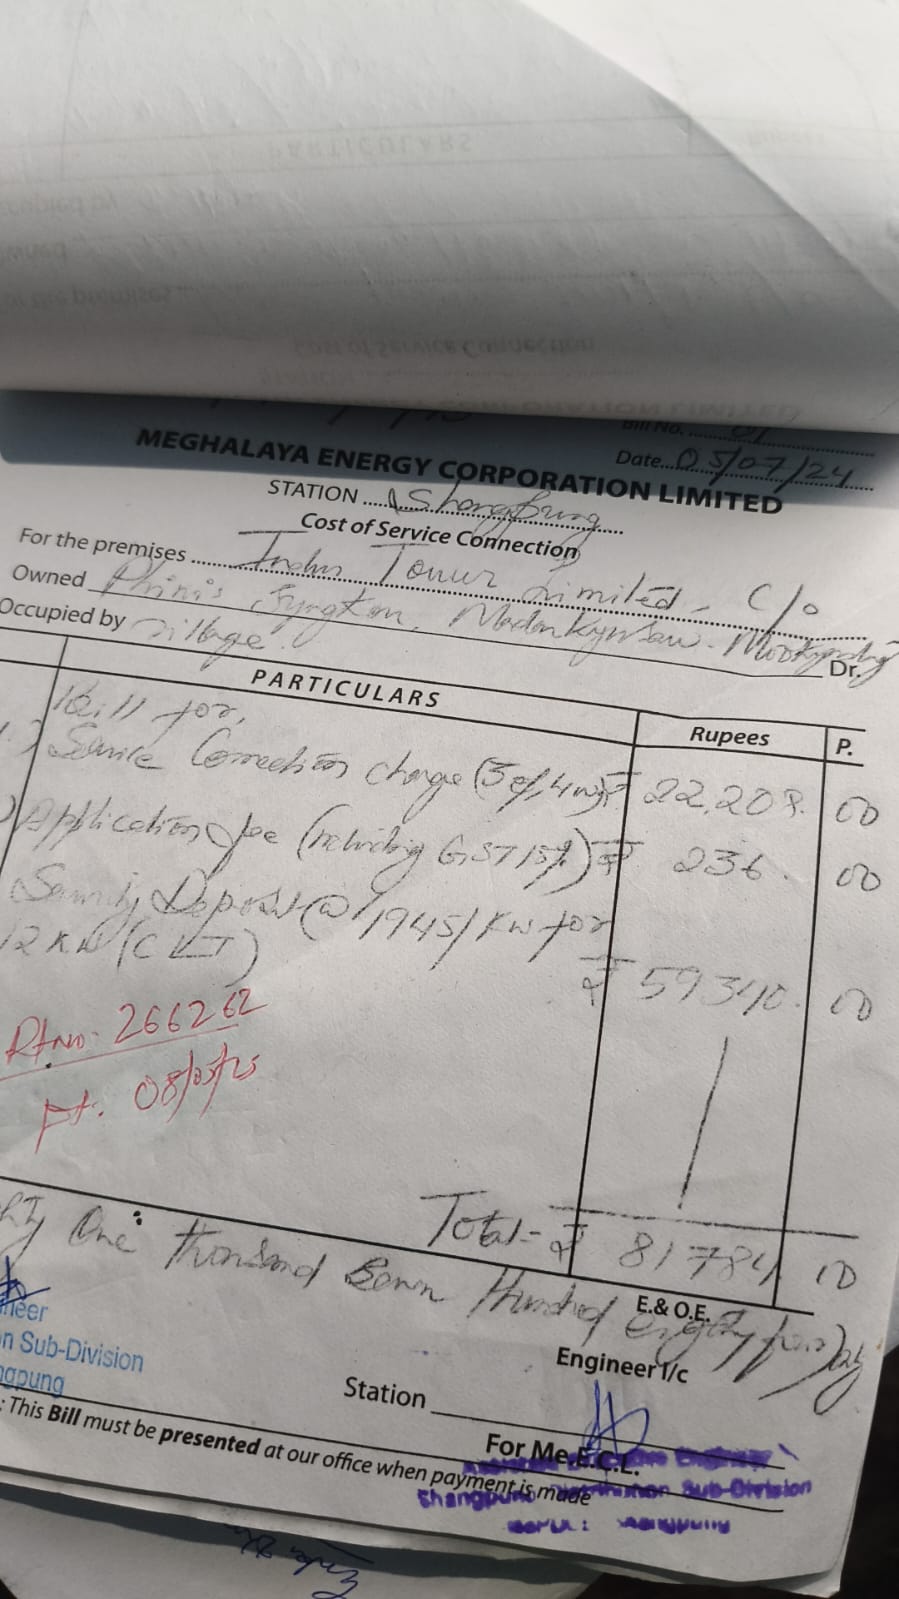 PARTICULARS
Cost of Service Connection
Bill No. 01
Date 05/07/24
MEGHALAYA ENERGY CORPORATION LIMITED
STATION Shangpung
Cost of Service Connection
For the premises Indus Tower Limited, C/o
Owned Phinis Syngkon, Madankynsaw - Mookyndeng
Occupied by Village. Dr.
PARTICULARS Rupees P.
Bill for,
1.) Service Connection charge (3 Ø, 4 w) ₹ 22,208. 00
) Application fee (including GST 18%) ₹ 236. 00
Security Deposit @ 1945/KW for
12 KW (CLT) ₹ 59340. 00
Rt No. 266262
Dt. 08/05/25
Total = ₹ 81784 00
One thousand Seven Hundred eighty four) only
E. & O.E.
neer
n Sub-Division
ngpung
Engineer I/c
Station
For Me.E.C.L.
: This Bill must be presented at our office when payment is made
Engineer
Shangpung Distribution Sub-Division